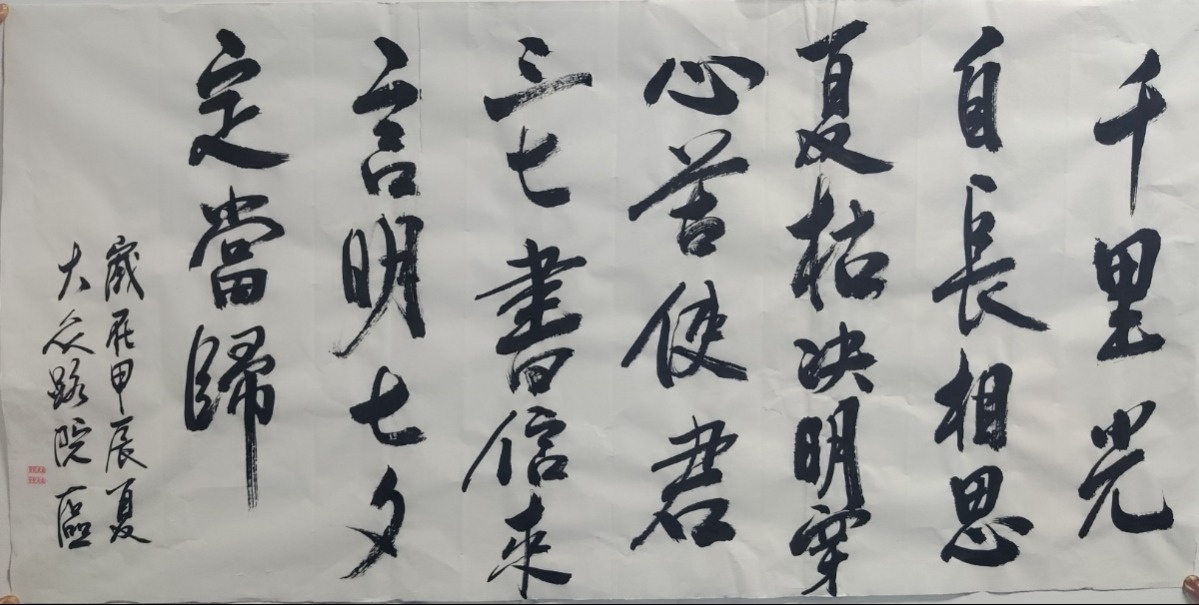 千里光
自長相思
夏枯决明穿
心苦使君
三七書信来
言明七夕
定當歸
歲在甲辰夏
大众路院區